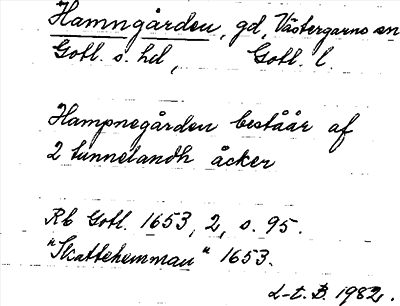 Hamngården, gd, Västergarns sn
Gotl. s. hd, Gotl. l.
Hampnegården beståår af
2 tunnelandh åcker
Rb Gotl. 1653, 2, s. 95.
"Skattehemman" 1653.
L-t. B. 1982.